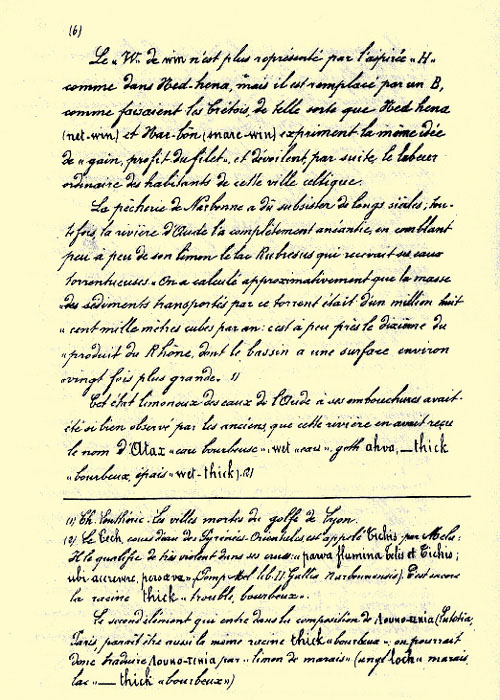 (6)
Le « W » de win n'est plus représenté par l'aspirée « H »
comme dans Ned-hena, mais il est remplacé par un B,
comme faisaient les Crétois, de telle sorte que Ned hena
(net-win) et Nar-bôn (snare-win) expriment la même idée
de « gain, profit du filet », et dévoilent, par suite, le labeur
ordinaire des habitants de cette ville celtique.
La pêcherie de Narbonne a dû subsister de longs siècles; tou-
tefois, la rivière d'Aude l'a complètement anéantie, en comblant
peu à peu de son limon le lac Rubresus qui recevait ses eaux
torrentueuses. « On a calculé approximativement que la masse
« des sédiments transportés par ce torrent était d'un million huit
« cent mille mètres cubes par an: c'est à peu près le dixième du
« produit du Rhône, dont le bassin a une surface environ
« vingt fois plus grande. 1)
Cet état limoneux des eaux de l'Aude à ses embouchures avait
été si bien observé par les anciens, que cette rivière en avait reçu
le nom d'Atax « eau bourbeuse »: wet « eau », goth ahva, _thick
« bourbeux, épais » wet-thick). (2)
(1) Ch. Lenthéric. Les villes mortes du golfe de Lyon.
(2) Le Tech, cours d'eau des Pyrénées-Orientales est appelé Tichis par Mela:
Il le qualifie de très violent dans ses crues: « parva flumina Telis et Tichis;
ubi accrevere, persæva » (Pomp. Mel. lib. II Gallia Narbonnensis). C'est encore
la racine thick « trouble, bourbeux ».
Le second élément qui entre dans la composition de Λουκο-τεκια (Lutetia,
Paris, paraît être aussi le même racine thick « bourbeux »: on pourrait
donc traduire Λουκο-τεκια par « limon de marais » (angl loch « marais,
lac » — thick « bourbeux »)